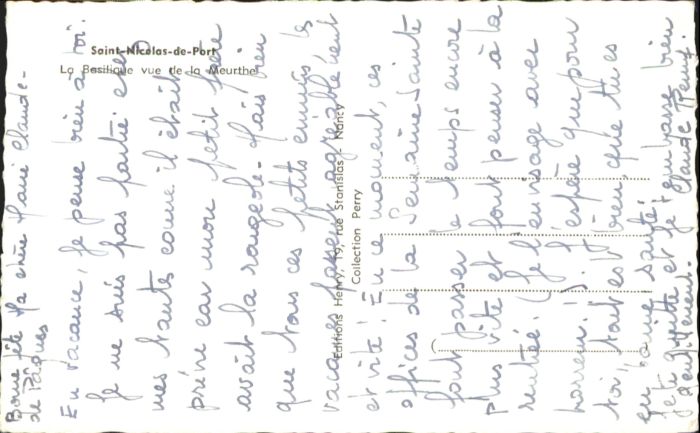 Saint-Nicolas-de-Port
La Basilique vue de la Meurthe
Editions Henry, 19, rue Stanislas - Nancy
Collection Perry
Bonne fête Ma chère Marie Claude -
de Pâques
En vacance, je pense bien à toi.
Je ne suis pas partie chez
mes tantes comme il était
prévu car mon petit frère
avait la rougeole - Mais rien
que tous ces petits ennuis les
vacances passent agréablement
et vite ! En ce moment, ces
offices de la Semaine Sainte
font passer le temps encore
plus vite et font penser à la
rentrée. (Je l'envisage avec
horreur !). J'espère que pour
toi, tout est bien, que tu es
en bonne santé.
Je te quitte et je t'embrasse bien
Claude